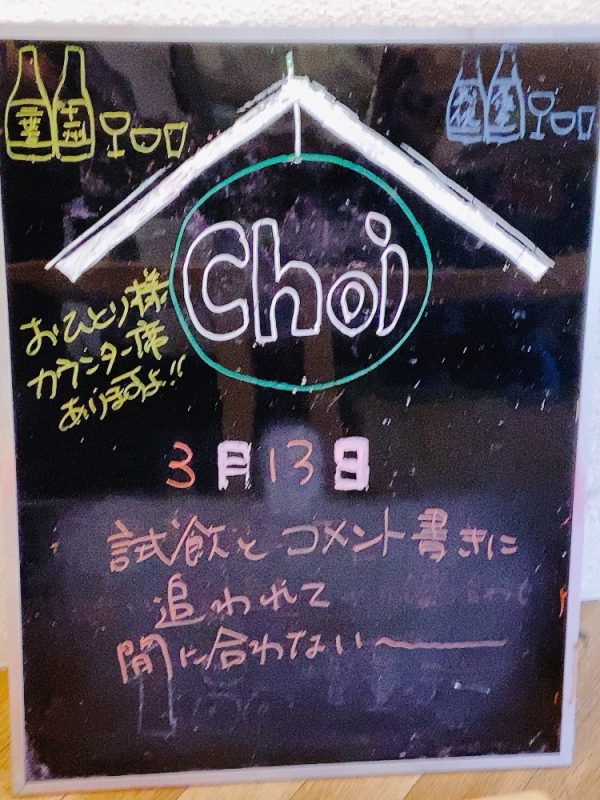 Choi
おひとり様
カウンター席
ありますよ!!
3月13日
試飲とコメント書きに
追われて
間に合わない〜